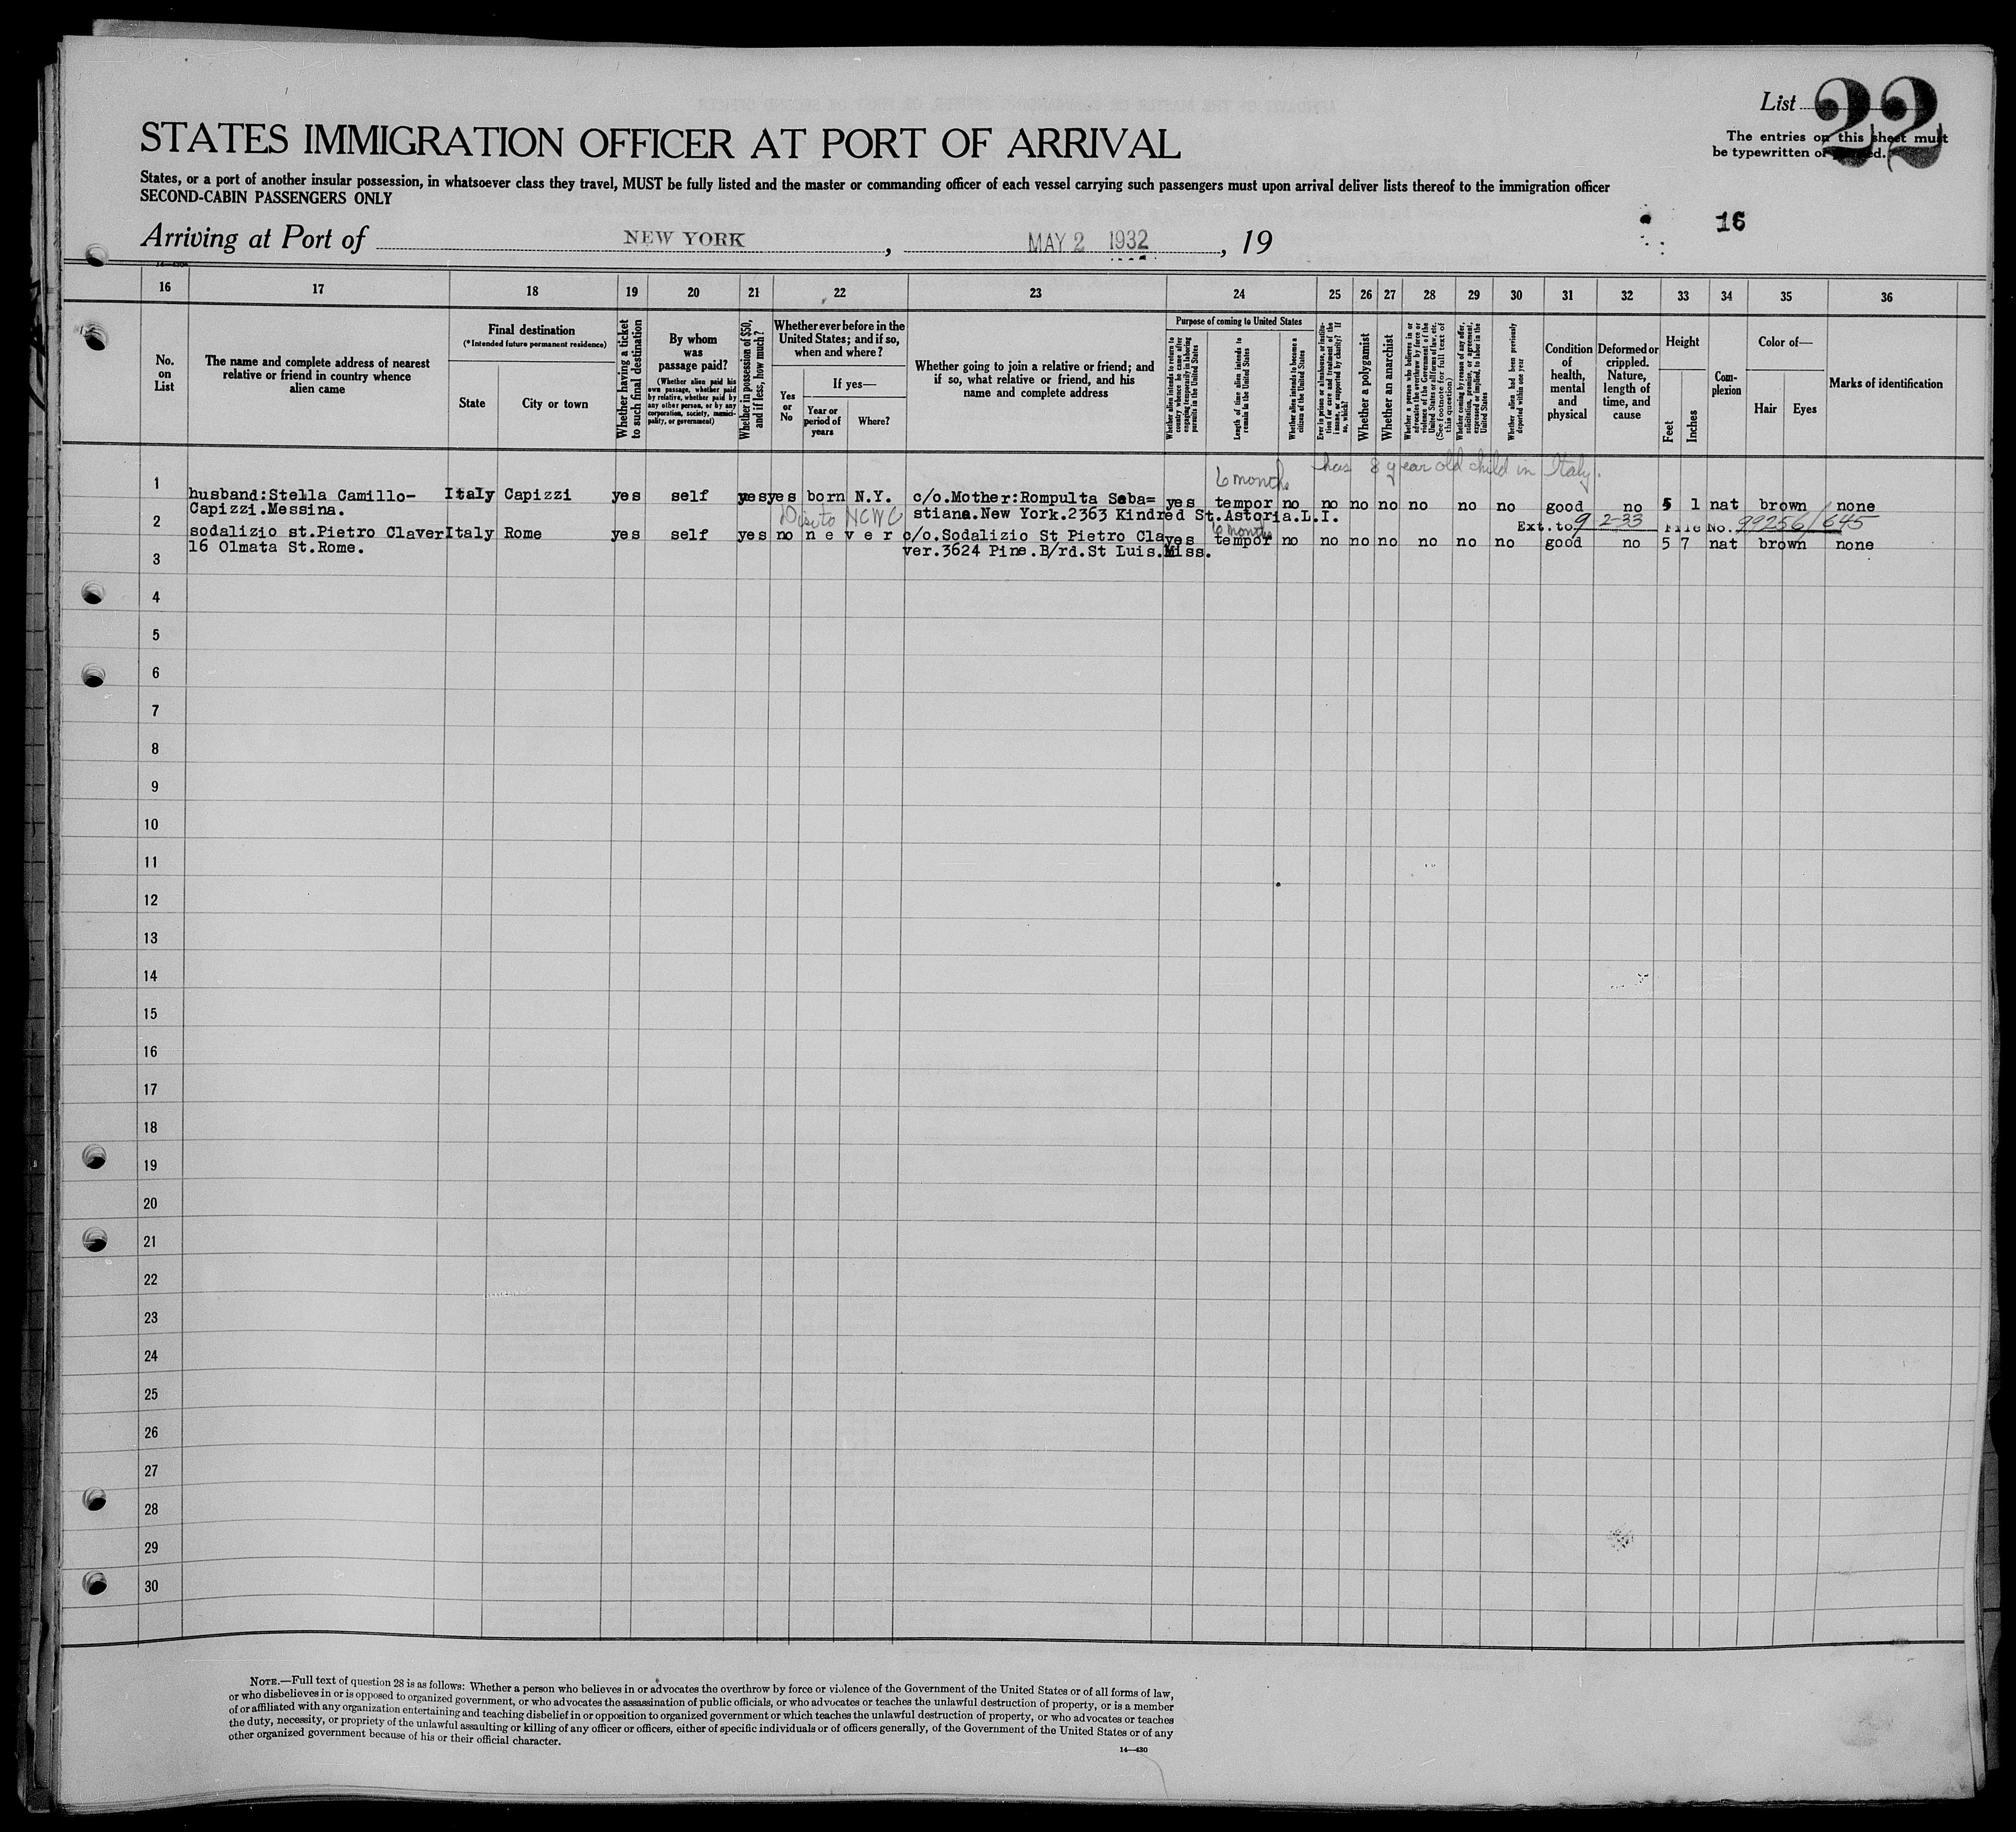 List 22
STATES IMMIGRATION OFFICER AT PORT OF ARRIVAL
The entries on this sheet must
be typewritten or
States, or a port of another insular possession, in whatsoever class they travel, MUST be fully listed and the master or commanding officer of each vessel carrying such passengers must upon arrival deliver lists thereof to the immigration officer
SECOND-CABIN PASSENGERS ONLY
16
Arriving at Port of NEW YORK, MAY 2 1932, 19
16 17 18 19 20 21 22 23 24 25 26 27 28 29 30 31 32 33 34 35 36
No.
on
List
The name and complete address of nearest
relative or friend in country whence
alien came
Final destination
(*Intended future permanent residence)
State
City or town
Whether having a ticket
to such final destination
By whom
was
passage paid?
(Whether alien paid his
own passage, whether paid
by relative, whether paid by
any other person, or by any
corporation, society, munici-
pality, or government)
Whether in possession of $50,
and if less, how much?
Whether ever before in the
United States; and if so,
when and where?
Yes
or
No
If yes—
Year or
period of
years
Where?
Whether going to join a relative or friend; and
if so, what relative or friend, and his
name and complete address
Purpose of coming to United States
Whether alien intends to return to
country whence he came after
engaging temporarily in laboring
pursuits in the United States
Length of time alien intends to
remain in the United States
Whether alien intends to become a
citizen of the United States
Ever in prison or almshouse, or institu-
tion for care and treatment of the
insane, or supported by charity? If
so, which?
Whether a polygamist
Whether an anarchist
Whether a person who believes in or
advocates the overthrow by force or
violence of the Government of the
United States or all forms of law, etc.
(See footnote for full text of
this question)
Whether coming by reason of any offer,
solicitation, promise, or agreement,
expressed or implied, to labor in the
United States
Whether alien had been previously
deported within one year
Condition
of
health,
mental
and
physical
Deformed or
crippled.
Nature,
length of
time, and
cause
Height
Feet
Inches
Com-
plexion
Color of—
Hair
Eyes
Marks of identification
6 months has 8 year old child in Italy.
1 husband:Stella Camillo- Italy Capizzi yes self yes yes born N.Y. c/o.Mother:Rompulta Seba= yes tempor no no no no no no no good no 5 1 nat brown none
Capizzi.Messina. stiana.New York.2363 Kindred St.Astoria.L.I.
NCWC 6 months Ext.to 9 2-33 File No. 99256/645
2 sodalizio st.Pietro Claver Italy Rome yes self yes no never c/o.Sodalizio St Pietro Cla yes tempor no no no no no no no good no 5 7 nat brown none
16 Olmata St.Rome. ver.3624 Pine.B/rd.St Luis.Miss.
3
4
5
6
7
8
9
10
11
12
13
14
15
16
17
18
19
20
21
22
23
24
25
26
27
28
29
30
NOTE.—Full text of question 28 is as follows: Whether a person who believes in or advocates the overthrow by force or violence of the Government of the United States or of all forms of law,
or who disbelieves in or is opposed to organized government, or who advocates the assassination of public officials, or who advocates or teaches the unlawful destruction of property, or is a member
of or affiliated with any organization entertaining and teaching disbelief in or opposition to organized government or which teaches the unlawful destruction of property, or who advocates or teaches
the duty, necessity, or propriety of the unlawful assaulting or killing of any officer or officers, either of specific individuals or of officers generally, of the Government of the United States or of any
other organized government because of his or their official character.
14—430